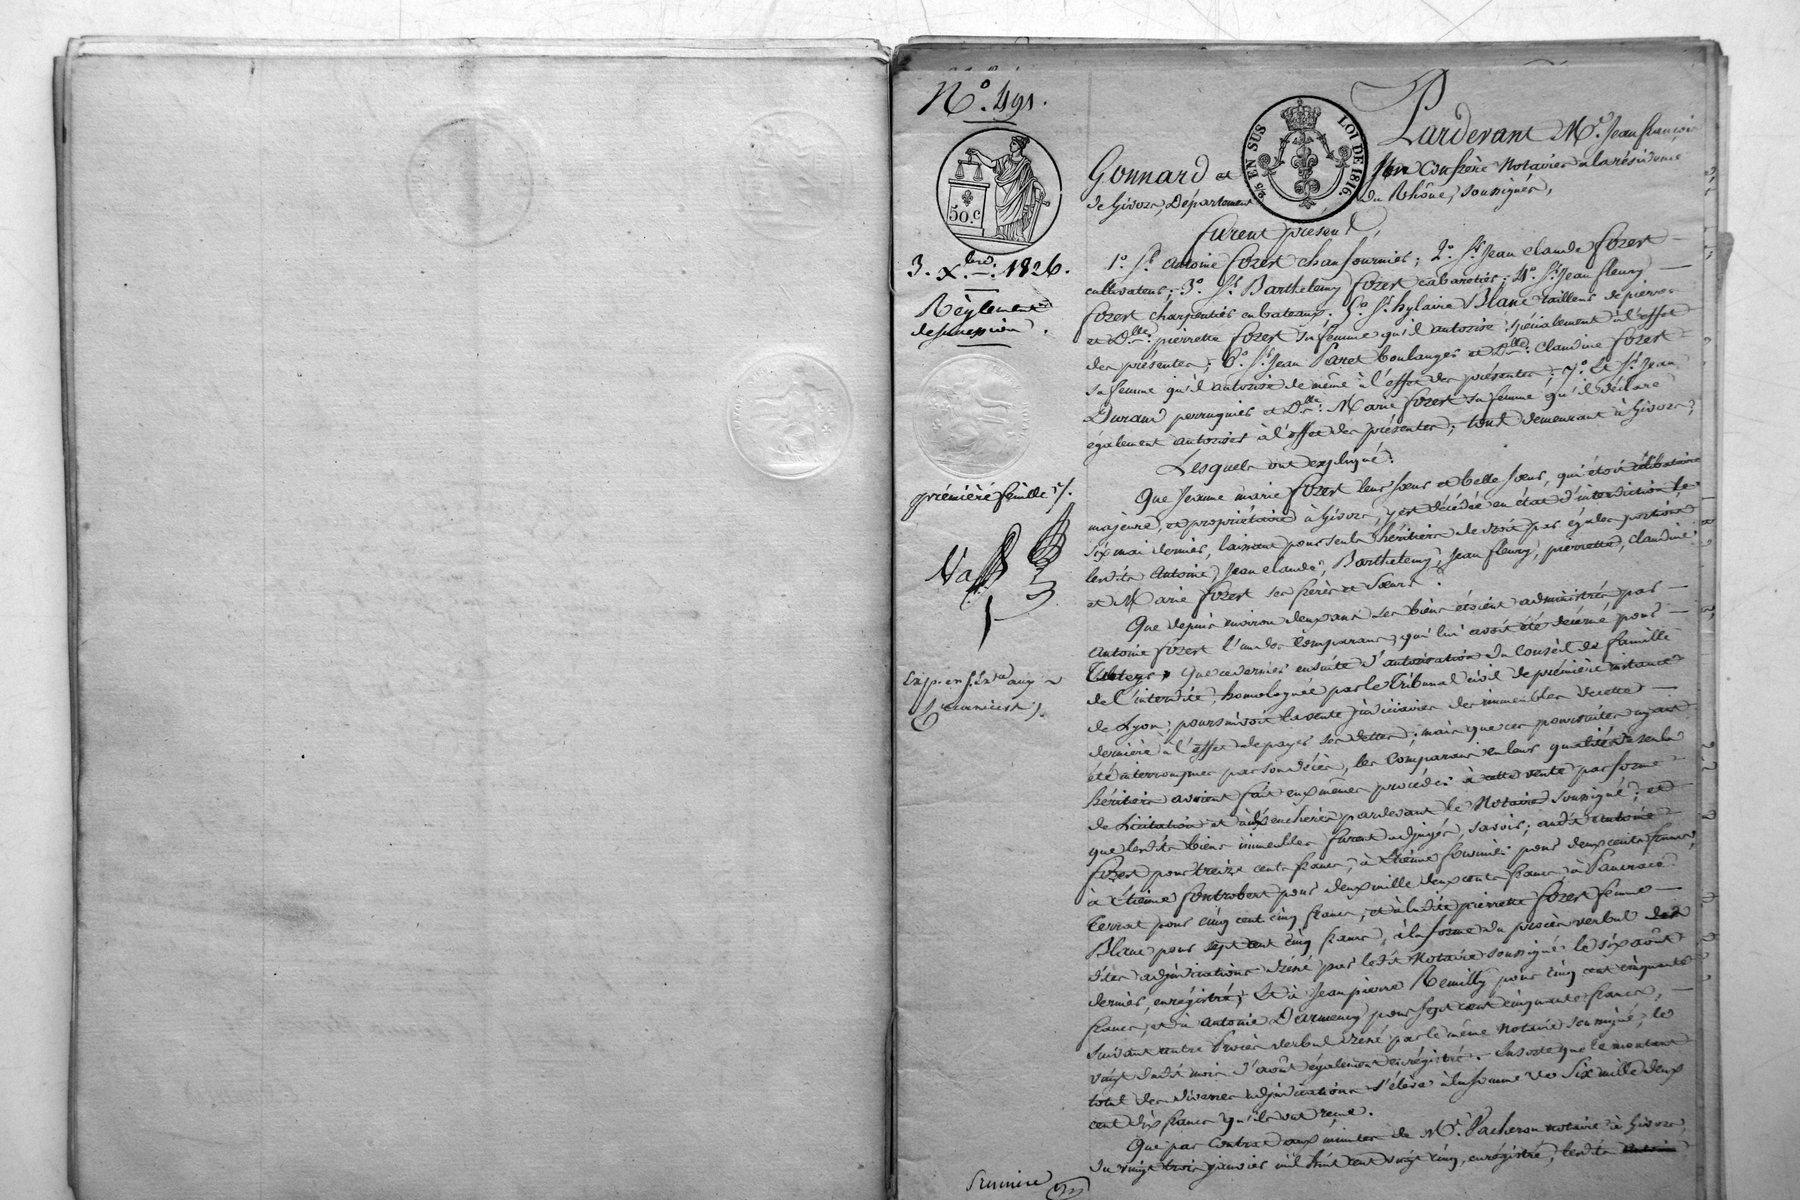 N.° 491.
50. c
25 EN SUS
LOI DE 1816.
3. Xbre. 1826.
Règlement
de succession.
première feuille
Pardevant Me. Jean françois
Gonnard et son Confrère Notaires à la résidence
de Givors, Département du Rhône, soussignés,
furent présents,
1.° Sr. Antoine fozert chaufournier; 2.° Sr. Jean claude fozert
cultivateur; 3.° Sr. Barthelemy fozert cabaretier; 4.° Sr. Jean fleury
fozert charpentier en bateaux; 5.° Sr. hylaire Blanc tailleur de pierres
et Dlle. pierrette fozert sa femme qu'il autorise spécialement à l'effet
des présentes; 6.° Sr. Jean boulanger et Dlle. Claudine fozert
sa femme qu'il autorise de même à l'effet des présentes; 7.° et Sr. Jean
Durand perruquier et Dlle. Marie fozert sa femme qu'il déclare
également autoriser à l'effet des présentes; tous demeurant à Givors;
Lesquels ont expliqué:
Que Jeanne marie fozert leur sœur et belle sœur, qui étoit célibataire
majeure, et propriétaire à Givors, y est décédée en état d'interdiction le
six mai dernier, laissant pour seuls héritiers de droit par égales portions
lesdits Antoine, Jean claude, Barthelemy, Jean fleury, pierrette, claudine
et Marie fozert ses frères et sœurs.
Que depuis environ deux ans ses biens étoient administrés par
Antoine fozert l'un des Comparans, qui lui avoit été décerné pour
Tuteur; Que ce dernier ensuite d'autorisation du Conseil de famille
de l'interdite, homologuée par le Tribunal civil de première instance
de Lyon; poursuivoit la vente judiciaire des immeubles de cette
dernière à l'effet de payer ses dettes; mais que ces poursuites ayant
été interrompues par son décès, les Comparans en leurs qualités de seuls
héritiers avoient fait eux mêmes procéder à cette vente par forme
de licitation et aux enchères pardevant le Notaire soussigné; et
que lesdits biens immeubles furent adjugés, savoir; audit Antoine
fozert pour treize cents francs, à Etienne pour deux cents francs,
à Etienne fontrobert pour deux mille deux cents francs à
pour cinq cent cinq francs, et à ladite pierrette fozert femme
Blanc pour sept cent cinq francs, à la forme du procès verbal des
dites adjudications dressé par ledit Notaire soussigné le six août
dernier, enregistré; Et à Jean pierre Remilly pour cinq cent cinquante
francs, et à Antoine Darmency pour sept cent cinquante francs,
suivant autre procès verbal dressé par le même Notaire soussigné, le
vingt dudit mois d'août également enregistré. Ensorte que le montant
total des diverses adjudications s'élève à la somme de Six mille deux
cent dix francs qu'ils ont reçue.
Que par Contrat aux minutes de Me. Vacheron notaire à Givors,
du vingt trois janvier mil huit cent vingt cinq, enregistré, lesdits